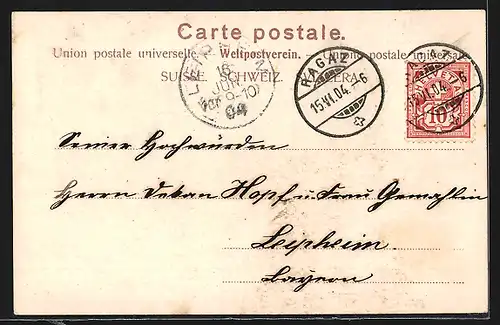 Carte postale.
Union postale universelle. — Weltpostverein. — Unione postale universale.
SUISSE. SCHWEIZ. SVIZZERA.
LEIPHEIM
16
JUN
Vor 9-10
04
RAGAZ
15.VI.04.–6
RAGAZ
15.VI.04.–6
HELVETIA
10
Seiner Hochwürden
Herrn Dekan Hopf u. Frau Gemahlin
Leipheim
Bayern